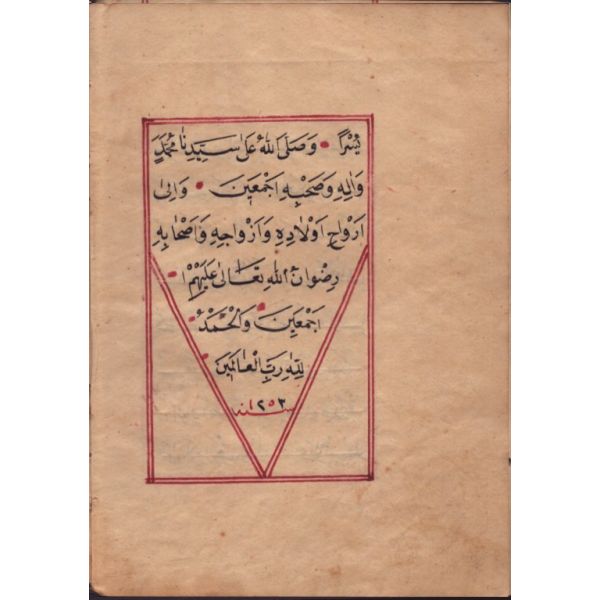 يُسْرًا وَصَلَّى اللّٰهُ عَلٰى سَيِّدِنَا مُحَمَّدٍ
وَاٰلِهِ وَصَحْبِهِ اَجْمَعِينَ وَاِلٰى
اَرْوَاحِ اَوْلَادِهِ وَاَزْوَاجِهِ وَاَصْحَابِهِ
رِضْوَانُ اللّٰهِ تَعَالٰى عَلَيْهِمْ ا
اَجْمَعِينَ وَالْحَمْدُ
لِلّٰهِ رَبِّ الْعَالَمِينَ
سنه ١٢٥٣